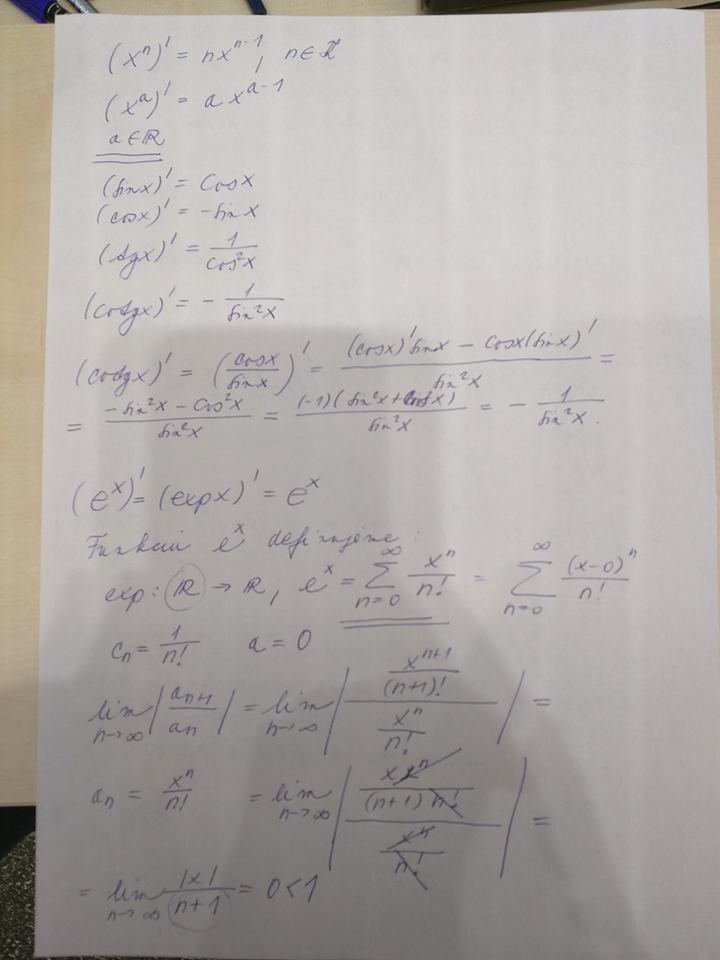 (xⁿ)' = nxⁿ⁻¹, n∈ℤ
(xᵃ)' = a xᵃ⁻¹
a∈ℝ
(sinx)' = cosx
(cosx)' = -sinx
(tgx)' = 1/cos²x
(cotgx)' = - 1/sin²x
(cotgx)' = (cosx/sinx)' = ((cosx)'sinx - cosx(sinx)')/sin²x =
= (-sin²x - cos²x)/sin²x = (-1)(sin²x + cos²x)/sin²x = - 1/sin²x.
(eˣ)' = (expx)' = eˣ
Funkcii eˣ definujeme:
exp: ℝ → ℝ, eˣ = ∑_{n=0}^{∞} xⁿ/n! = ∑_{n=0}^{∞} (x-0)ⁿ/n!
cₙ = 1/n! a = 0
lim_{n→∞} |aₙ₊₁/aₙ| = lim_{n→∞} |(xⁿ⁺¹/(n+1)!)/(xⁿ/n!)| =
aₙ = xⁿ/n! = lim_{n→∞} |(x xⁿ/((n+1) n!))/(xⁿ/n!)| =
= lim_{n→∞} |x|/(n+1) = 0 < 1